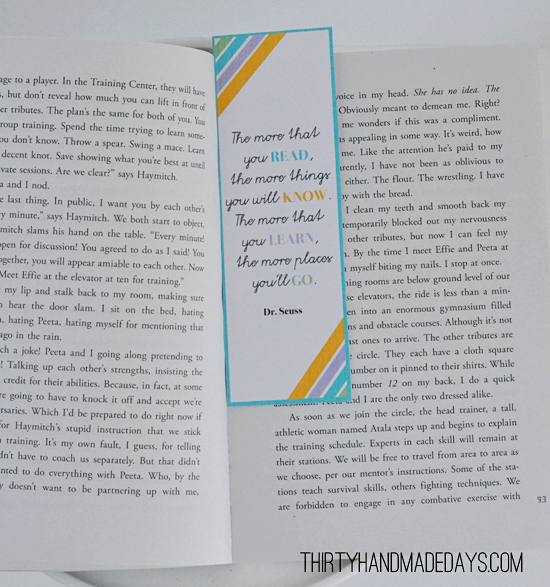 age to a player. In the Training Center, they will have
, but don't reveal how much you can lift in front of
er tributes. The plan's the same for both of you. You
roup training. Spend the time trying to learn some-
you don't know. Throw a spear. Swing a mace. Learn
decent knot. Save showing what you're best at until
vate sessions. Are we clear?" says Haymitch.
a and I nod.
e last thing. In public, I want you by each other's
ry minute," says Haymitch. We both start to object,
mitch slams his hand on the table. "Every minute!
open for discussion! You agreed to do as I said! You
ogether, you will appear amiable to each other. Now
Meet Effie at the elevator at ten for training."
my lip and stalk back to my room, making sure
n hear the door slam. I sit on the bed, hating
, hating Peeta, hating myself for mentioning that
ago in the rain.
ch a joke! Peeta and I going along pretending to
! Talking up each other's strengths, insisting the
credit for their abilities. Because, in fact, at some
re going to have to knock it off and accept we're
rsaries. Which I'd be prepared to do right now if
for Haymitch's stupid instruction that we stick
training. It's my own fault, I guess, for telling
dn't have to coach us separately. But that didn't
nted to do everything with Peeta. Who, by the
y doesn't want to be partnering up with me,
The more that
you READ,
the more things
you will KNOW.
The more that
you LEARN,
the more places
you'll GO.
Dr. Seuss
voice in my head. She has no idea. The
Obviously meant to demean me. Right?
me wonders if this was a compliment.
as appealing in some way. It's weird, how
me. Like the attention he's paid to my
rently, I have not been as oblivious to
either. The flour. The wrestling. I have
y with the bread.
I clean my teeth and smooth back my
temporarily blocked out my nervousness
other tributes, but now I can feel my
. By the time I meet Effie and Peeta at
myself biting my nails. I stop at once.
ning rooms are below ground level of our
se elevators, the ride is less than a min-
en into an enormous gymnasium filled
ns and obstacle courses. Although it's not
ast ones to arrive. The other tributes are
circle. They each have a cloth square
umber on it pinned to their shirts. While
number 12 on my back, I do a quick
and I are the only two dressed alike.
As soon as we join the circle, the head trainer, a tall,
athletic woman named Atala steps up and begins to explain
the training schedule. Experts in each skill will remain at
their stations. We will be free to travel from area to area as
we choose, per our mentor's instructions. Some of the sta-
tions teach survival skills, others fighting techniques. We
are forbidden to engage in any combative exercise with
93
THIRTYHANDMADEDAYS.COM